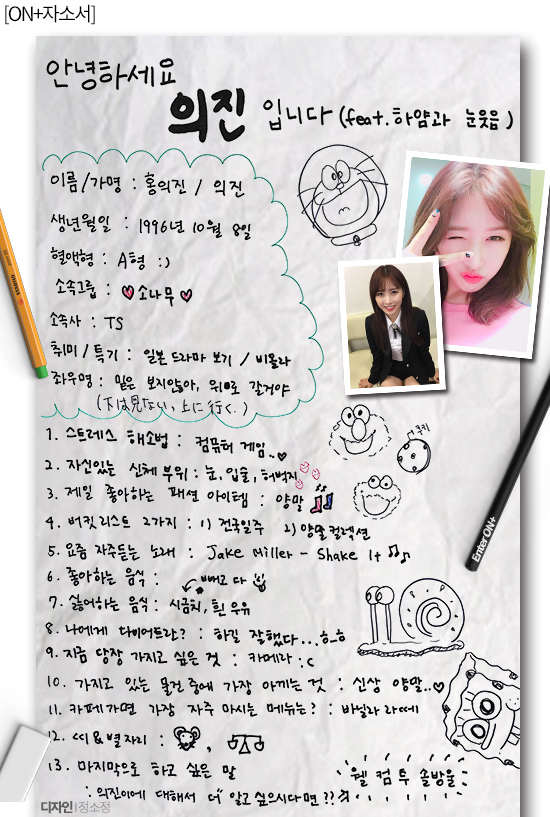 [ON+자소서]
안녕하세요
의진 입니다 (feat. 하얌과 눈웃음)
이름/가명 : 홍의진 / 의진
생년월일 : 1996년 10월 8일
혈액형 : A형 :)
소속그룹 : ♥소나무♥
소속사 : TS
취미/특기 : 일본드라마 보기 / 비올라
좌우명 : 밑은 보지않아, 위로 갈거야
(下は見ない、上に行く.)
1. 스트레스 해소법 : 컴퓨터 게임..♡
2. 자신있는 신체 부위 : 눈, 입술, 허벅지
3. 제일 좋아하는 패션 아이템 : 양말
쿠키
4. 버킷리스트 2가지 : 1) 전국일주 2) 양말 컬렉션
5. 요즘 자주듣는 노래 : Jake Miller - Shake It ♫♪
6. 좋아하는 음식 : 빼고 다
7. 싫어하는 음식 : 시금치, 흰 우유
8. 나에게 다이어트란? : 하길 잘했다...ㅎ_ㅎ
9. 지금 당장 가지고 싶은 것 : 카메라 :c
10. 가지고 있는 물건 중에 가장 아끼는 것 : 신상 양말..♡
11. 카페가면 가장 자주 마시는 메뉴는? : 바닐라 라떼
12. 띠&별자리 : ,
13. 마지막으로 하고 싶은 말
: 의진이에 대해서 더 알고 싶으시다면??
웰 컴 투 솔방울
Enter ON+
디자인 | 정소정